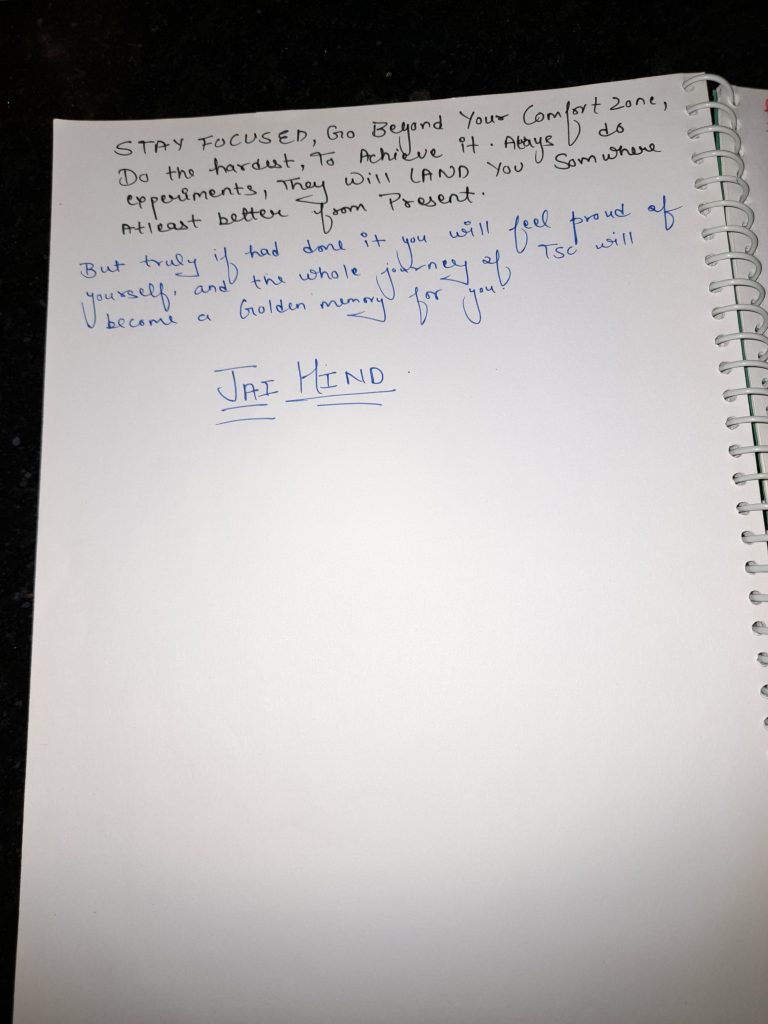 STAY FOCUSED, Go Beyond Your Comfort Zone,
Do the hardest, To Achieve it. Always do
experiments, They Will LAND You Somwhere
Atleast better from Present.
But truly if had done it you will feel proud of
yourself. and the whole journey of TSC will
become a Golden memory for you.
JAI HIND